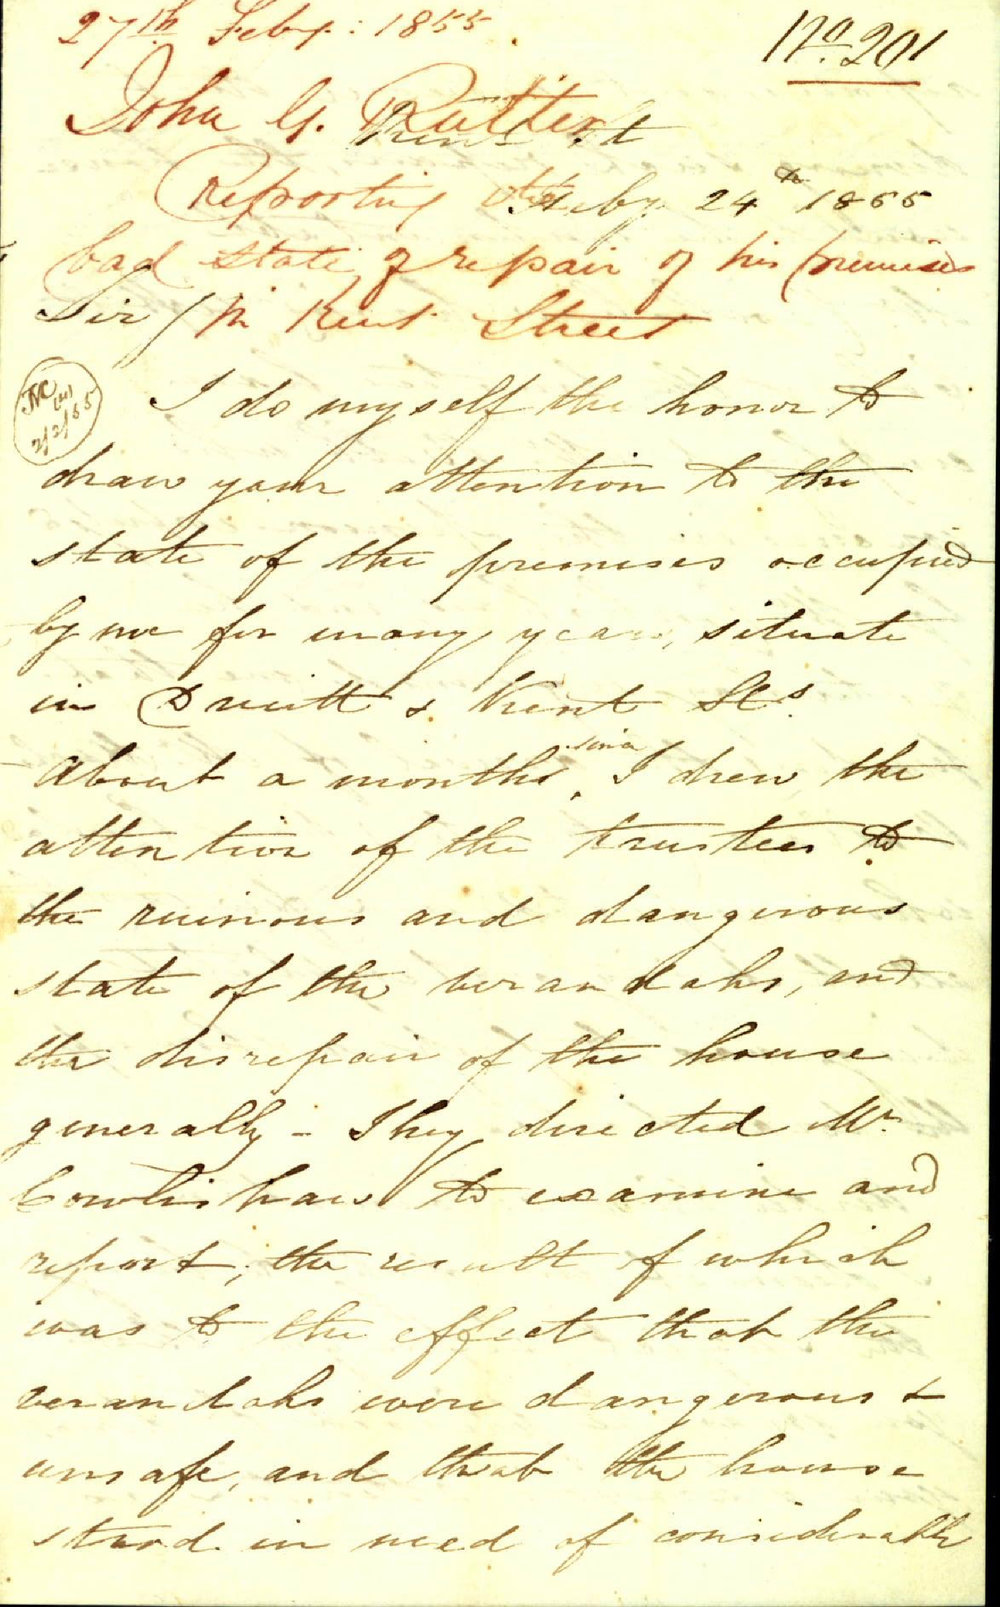 27th Feby: 1855.
No. 201
John G. Rutter
Kent St
Reporting the
Feby 24th 1855
bad state of repair of his premises
Sir/
in Kent Street
I do myself the honor to
draw your attention to the
state of the premises occupied
by me for many years, situate
in Druitt & Kent Sts.
About a months since I drew the
attention of the trustees to
the ruinous and dangerous
state of the verandahs, and
the disrepair of the house
generally - They directed Mr
Cowlishaw to examine and
report; the result of which
was to the effect that the
verandahs were dangerous &
unsafe, and that the house
stood in need of considerable